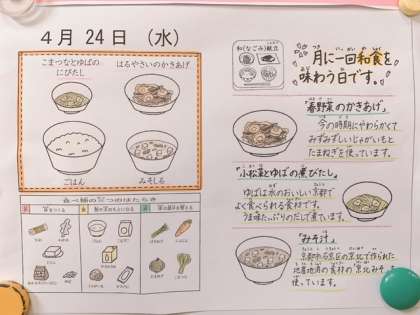 4月24日（水）
こまつなとゆばの
にびたし
はるやさいのかきあげ
ごはん
みそしる
和(なごみ)献立
月に一回和食を
味わう日です。
「春野菜のかきあげ」
今の時期にやわらかくて
みずみずしいじゃがいもと
たまねぎを使っています。
「小松菜とゆばの煮びたし」
ゆばは水のおいしい京都で
よく食べられる食材です。
うま味たっぷりのだしで煮ています。
「みそ汁」
京都市右京区の京北で作られた
地産地消の食材の京北みそを
使っています。